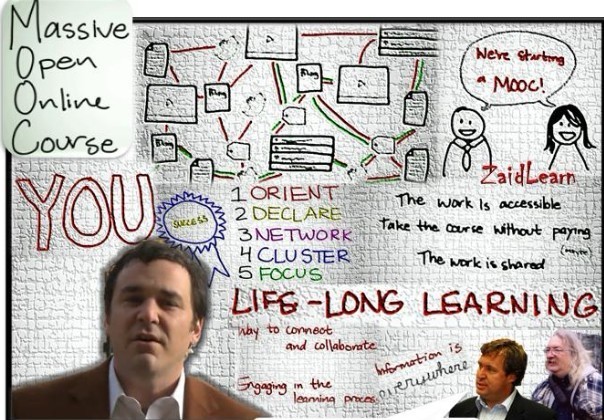 Massive
Open
Online
Course
Blog
Blog
Blog
We're starting
a MOOC!
ZaidLearn
YOU
SUCCESS
1 ORIENT
2 DECLARE
3 NETWORK
4 CLUSTER
5 FOCUS
The work is accessible
Take the course without paying
(maybe)
The work is shared
LIFE-LONG LEARNING
Way to connect
and collaborate
Information is
everywhere
Engaging in the
learning process